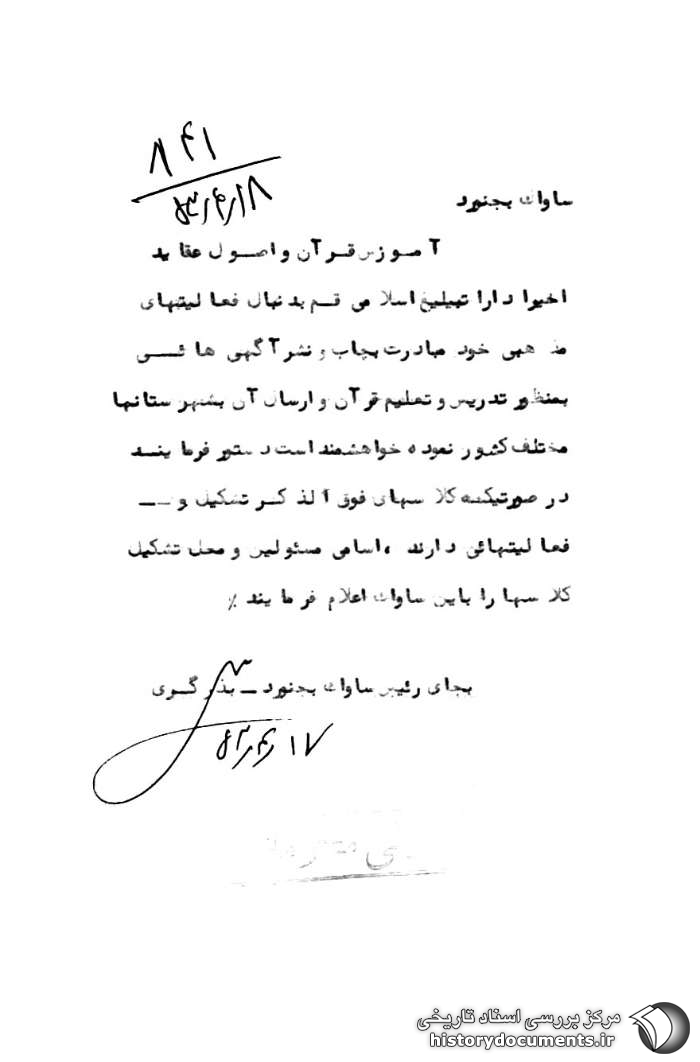 ۸۴۱
۵۳٫۴٫۱۸
ساواک بجنورد
آموزش قرآن و اصول عقاید
اخیرا دارا تبلیغ اسلامی قم بدنبال فعالیتهای
مذهبی خود مبادرت بچاپ و نشر آگهی هائی
بمنظور تدریس و تعلیم قرآن و ارسال آن بشهرستانها
مختلف کشور نموده خواهشمند است دستور فرمایند
در صورتیکه کلاسهای فوق الذکر تشکیل و
فعالیتهائی دارند ، اسامی مسئولین و محل تشکیل
کلاسها را باین ساواک اعلام فرمایند ٪
بجای رئیس ساواک بجنورد – بذرگری
۵۳٫۴٫۱۷
مرکز بررسی اسناد تاریخی
historydocuments.ir